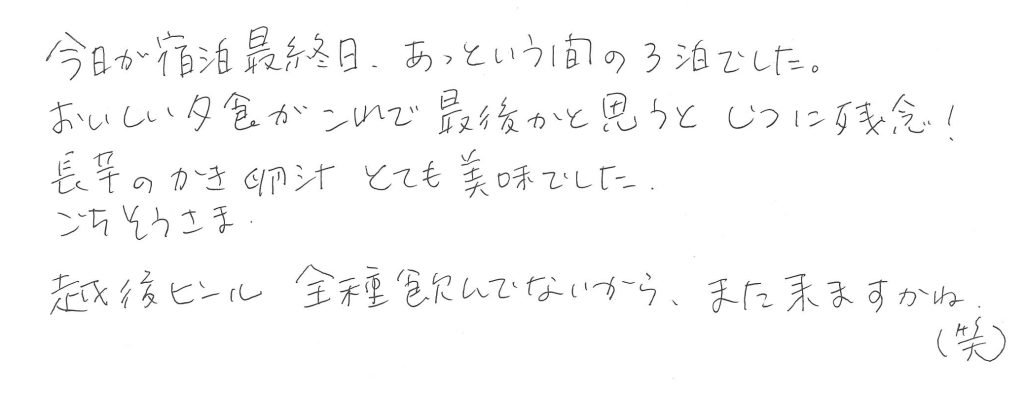 今日が宿泊最終日、あっという間の3泊でした。
おいしい夕食がこれで最後かと思うと じつに残念!
長芋のかき卵汁 とても美味でした.
ごちそうさま.
越後ビール 全種飲んでないから、また来ますかね.
(笑)